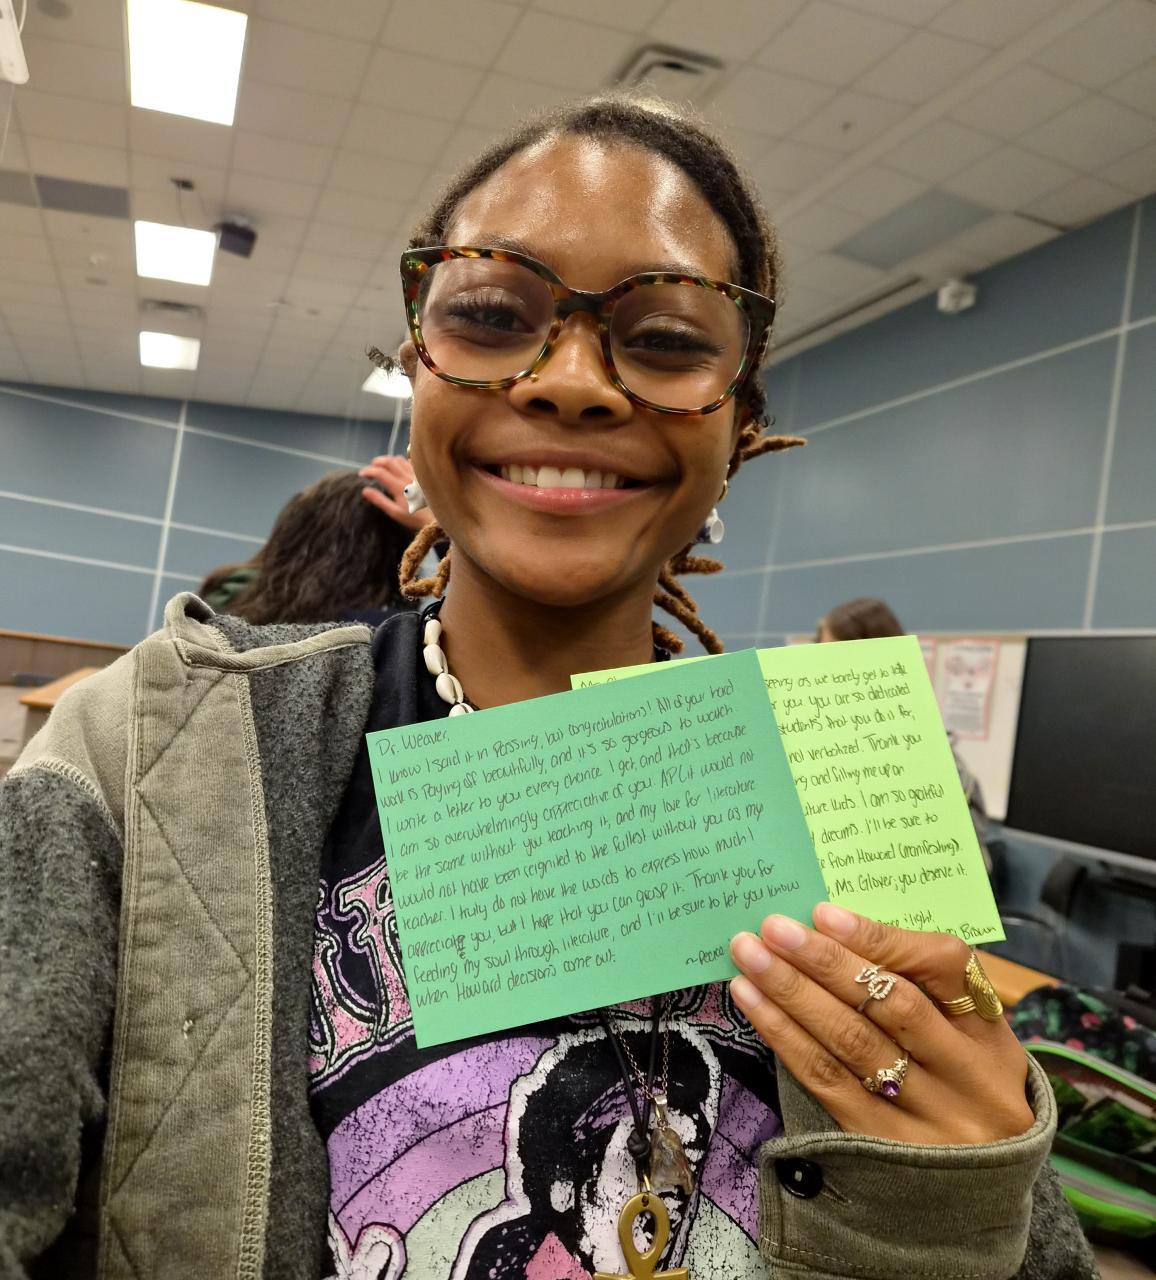 Dr. Weaver,
I know I said it in passing, but congratulations! All of your hard
work is paying off beautifully, and it's so gorgeous to watch.
I write a letter to you every chance I get, and that's because
I am so overwhelmingly appreciative of you. APLit would not
be the same without you teaching it, and my love for literature
would not have been reignited to the fullest without you as my
teacher. I truly do not have the words to express how much I
appreciate you, but I hope that you can grasp it. Thank you for
feeding my soul through literature, and I'll be sure to let you know
when Howard decisions come out.
~Peace
seeing as we barely get to talk
you. You are so dedicated
students that you do it for,
not verbalized. Thank you
and filling me up on
I am so grateful
dreams. I'll be sure to
from Howard (manifesting).
Ms. Glover, you deserve it.
light,
Brown